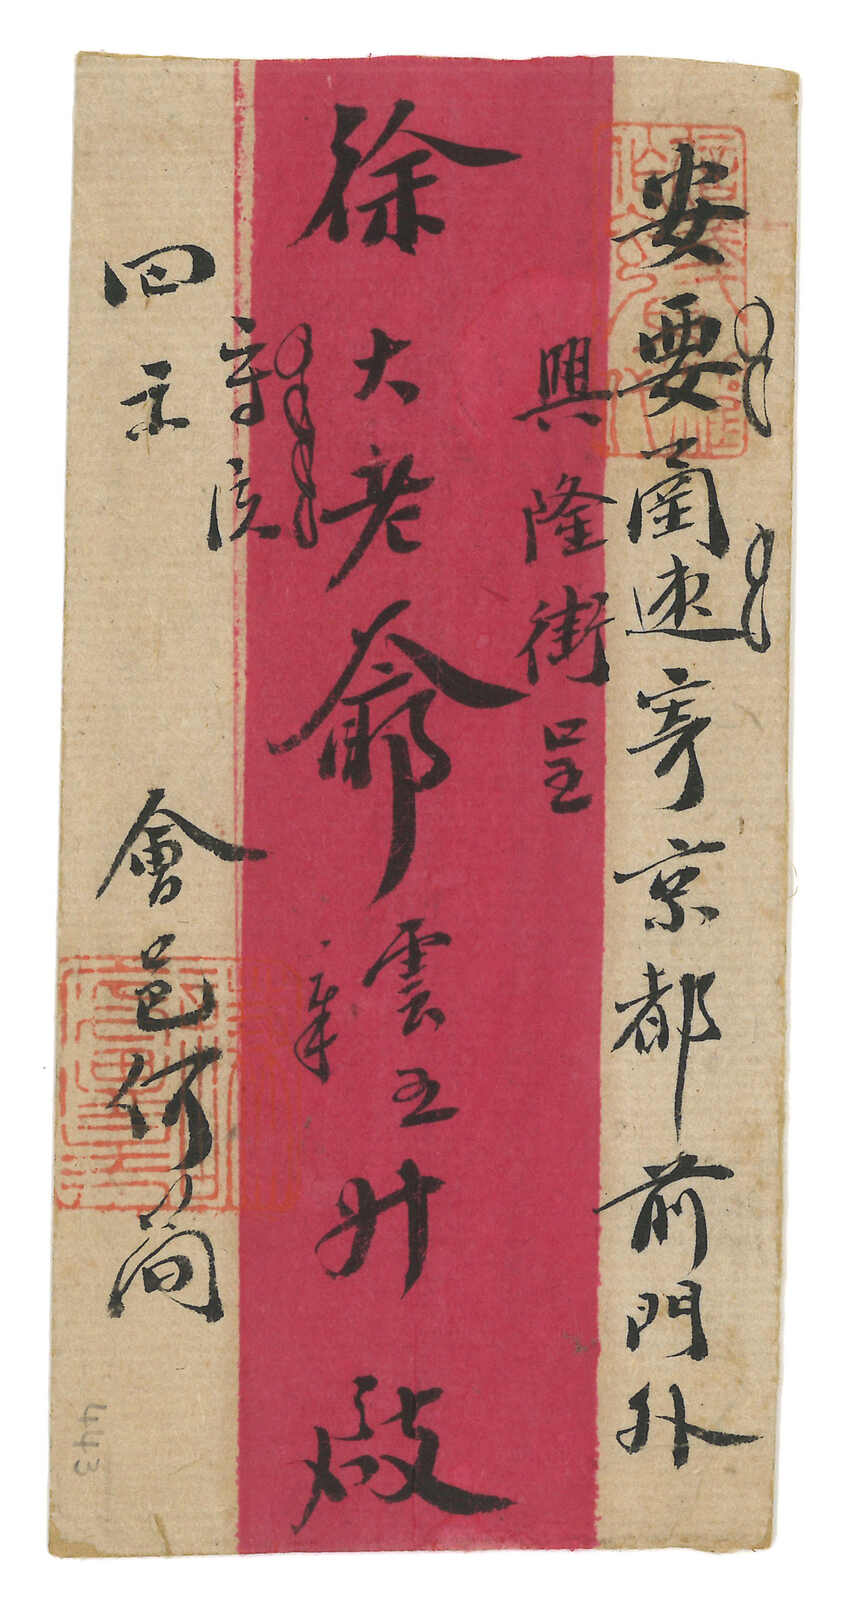 安要菌速寄京都前門外
興隆街呈
徐大老爺雲五升啟
守候
回示
會邑何简
443